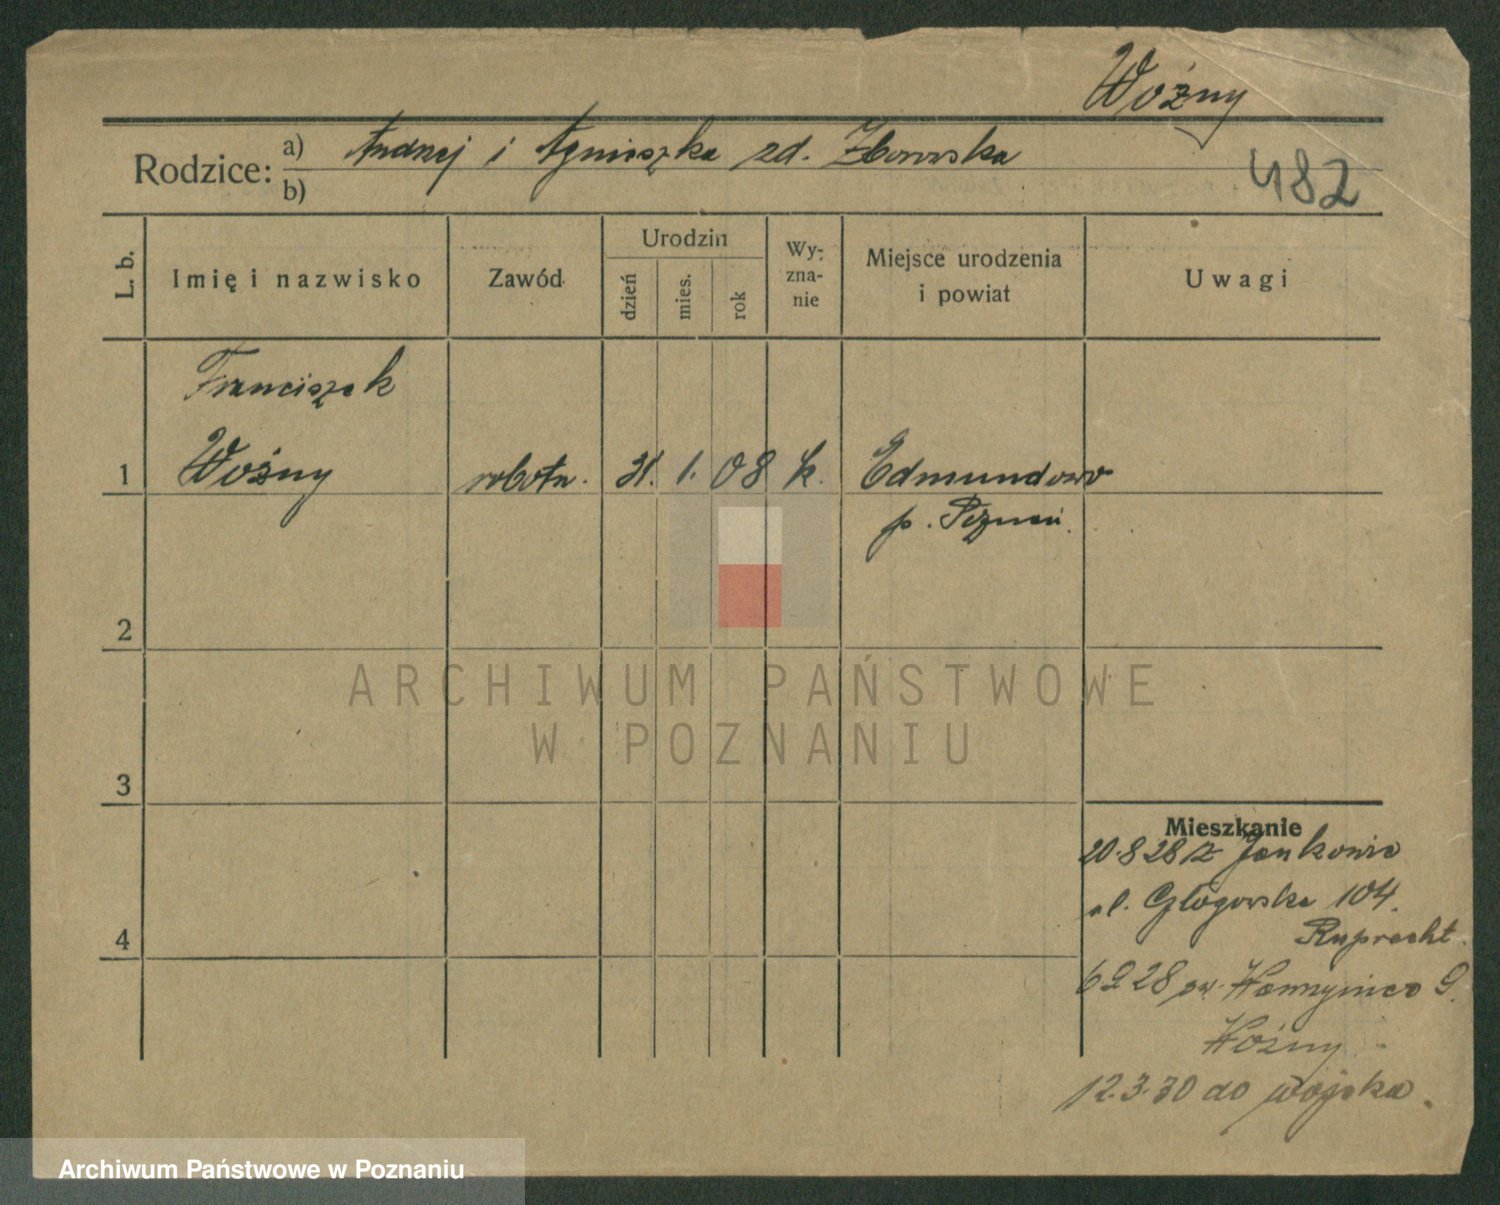 Woźny
Rodzice: a) Andrzej i Agnieszka zd. Zborowska
b)
482
L. b.
Imię i nazwisko
Zawód
Urodzin
dzień
mies.
rok
Wy-
zna-
nie
Miejsce urodzenia
i powiat
Uwagi
Franciszek
1 Woźny robotn. 31. 1. 08 k. Edmundowo
p. Poznań.
2
3
4
ARCHIWUM PAŃSTWOWE
W POZNANIU
Mieszkanie
20.8 28 z Jankowic
ul. Głogowska 104.
Ruprecht.
6 9 28 9.
Woźny
12.3.30 do wojska.
Archiwum Państwowe w Poznaniu